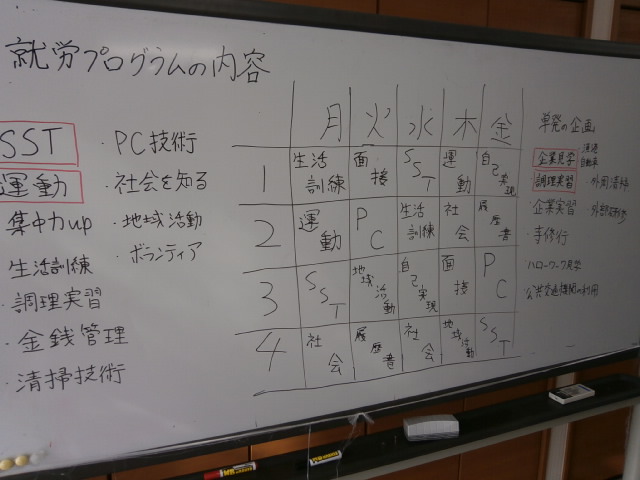 就労プログラムの内容
SST
運動
集中力up
生活訓練
・調理実習
・金銭管理
・清掃技術
・PC技術
・社会を知る
・地域活動
・ボランティア
月 火 水 木 金
1 生活訓練 面接 SST 運動 自己実現
2 運動 PC 生活訓練 社会 履歴書
3 SST 地域活動 自己実現 面接 PC
4 社会 履歴書 社会 地域活動 SST
単発の企画
企業見学
調理実習
・外周清掃
・企業実習
・ハローワーク見学
公共交通機関の利用